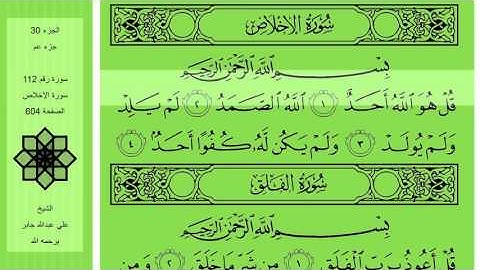 الجزء 30
جزء عم
سورة رقم 112
سورة الإخلاص
الصفحة 604
الشيخ
علي عبدالله جابر
يرحمه الله
سُورَةُ الإِخْلَاصِ
بِسْمِ اللَّهِ الرَّحْمَٰنِ الرَّحِيمِ
قُلْ هُوَ اللَّهُ أَحَدٌ ١ اللَّهُ الصَّمَدُ ٢ لَمْ يَلِدْ
وَلَمْ يُولَدْ ٣ وَلَمْ يَكُن لَّهُۥ كُفُوًا أَحَدٌ ٤
سُورَةُ الفَلَقِ
بِسْمِ اللَّهِ الرَّحْمَٰنِ الرَّحِيمِ
قُلْ أَعُوذُ بِرَبِّ الْفَلَقِ ١ مِن شَرِّ مَا خَلَقَ ٢ وَمِن